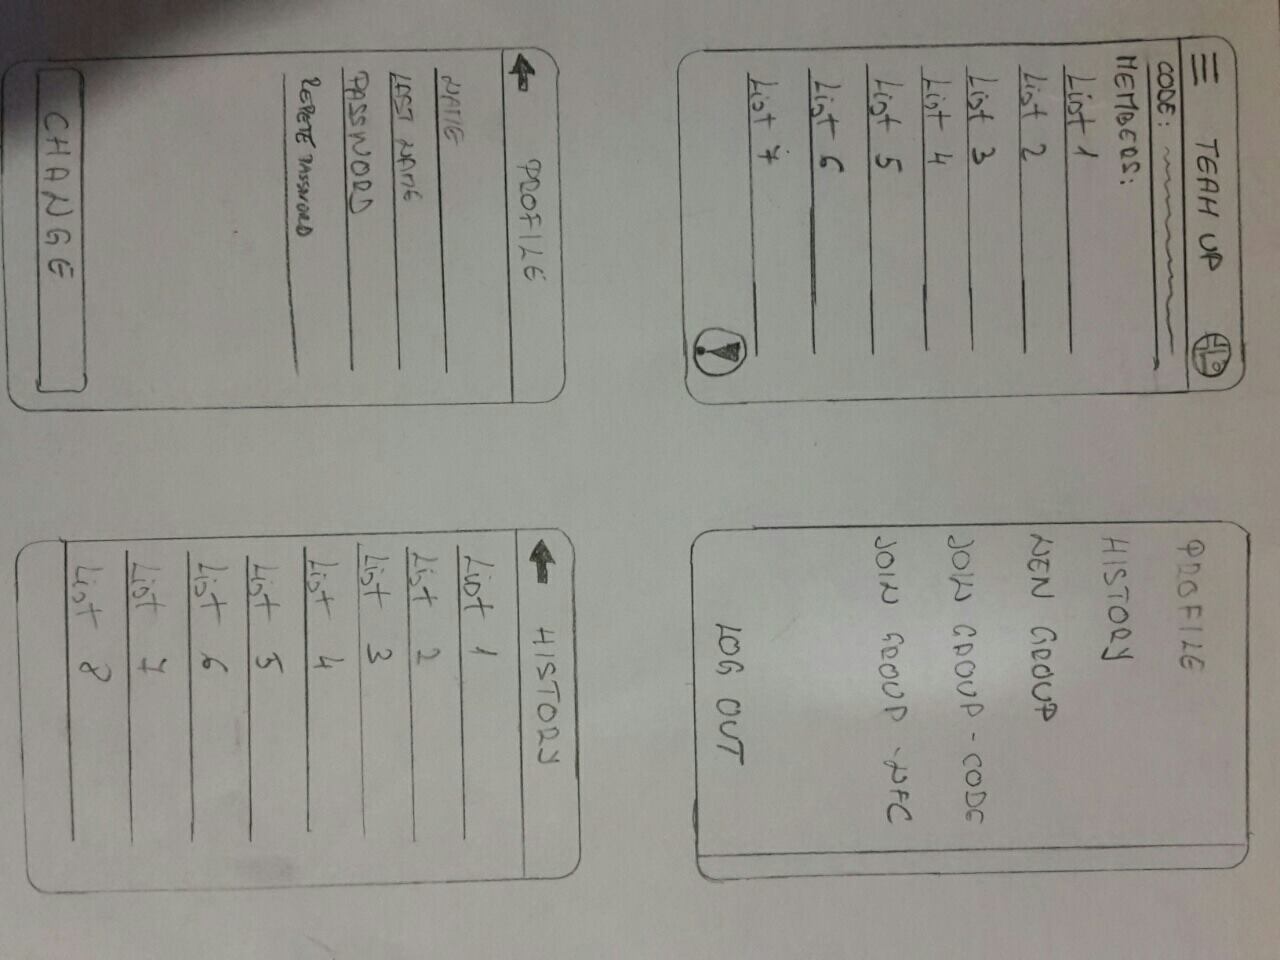 TEAM UP
CODE:
MEMBERS:
List 1
List 2
List 3
List 4
List 5
List 6
List 7
!
PROFILE
HISTORY
NEW GROUP
JOIN GROUP - CODE
JOIN GROUP - NFC
LOG OUT
PROFILE
NAME
LAST NAME
PASSWORD
REPETE PASSWORD
CHANGE
HISTORY
List 1
List 2
List 3
List 4
List 5
List 6
List 7
List 8